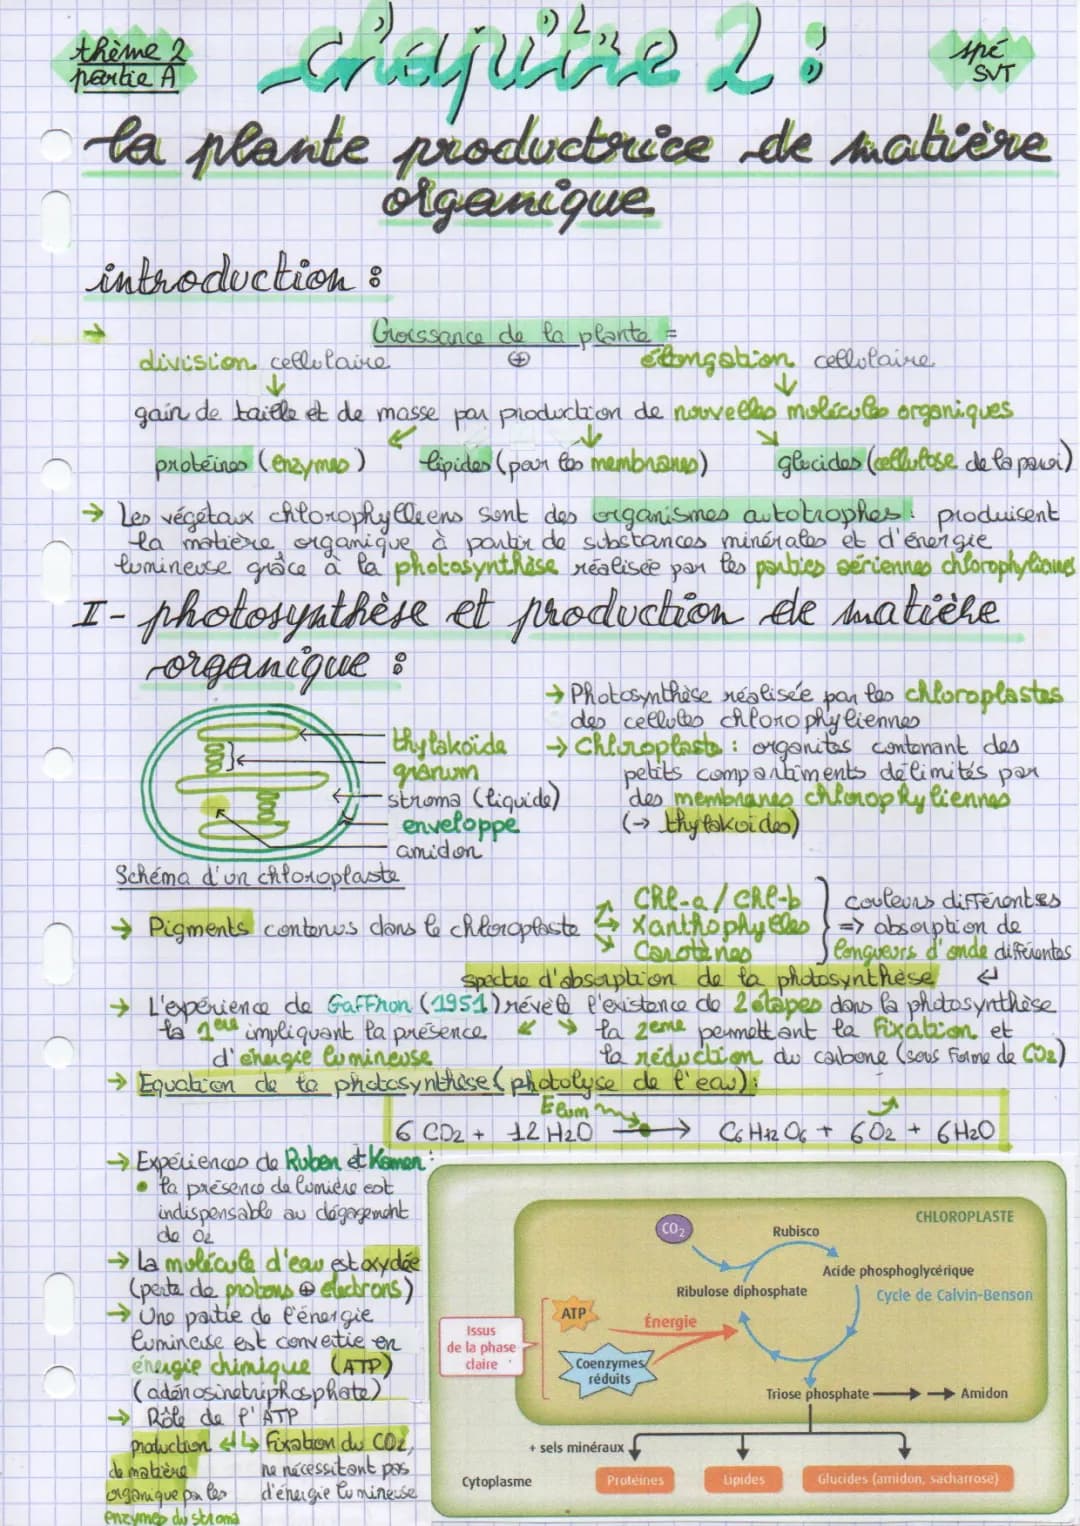 thème 2
partie A
chapitre 2 :
spé
SVT
la plante productrice de matière
organique
introduction :
→ Croissance de la plante =
division cellulaire ⊕ élongation cellulaire
gain de taille et de masse par production de nouvelles molécules organiques
protéines (enzymes) lipides (pour les membranes) glucides (cellulose de la paroi)
→ Les végétaux chlorophylleens sont des organismes autotrophes : produisent
la matière organique à partir de substances minérales et d'énergie
lumineuse grâce à la photosynthèse réalisée par les parties aériennes chlorophyliennes
I- photosynthèse et production de matière
organique :
→ Photosynthèse réalisée par les chloroplastes
des cellules chlorophyliennes
→ Chloroplaste : organites contenant des
petits compartiments délimités par
des membranes chlorophyliennes
(→ thylakoïdes)
thylakoïde
granum
stroma (liquide)
enveloppe
amidon
Schéma d'un chloroplaste
→ Pigments contenus dans le chloroplaste
Chl-a / Chl-b
Xanthophylles
Carotènes
couleurs différentes
=> absorption de
longueurs d'onde différentes
spectre d'absorption de la photosynthèse
→ L'expérience de Gaffron (1951) révèle l'existence de 2 étapes dans la photosynthèse
la 1ere impliquant la présence
d'énergie lumineuse
la 2eme permettant la fixation et
la réduction du carbone (sous forme de CO2)
→ Equation de la photosynthèse (photolyse de l'eau) :
E lum
6 CO2 + 12 H2O → C6H12O6 + 6O2 + 6H2O
→ Expériences de Ruben et Kamen :
• la présence de lumière est
indispensable au dégagement
de O2
→ La molécule d'eau est oxydée
(perte de protons ⊕ électrons)
→ Une partie de l'énergie
lumineuse est convertie en
énergie chimique (ATP)
(adénosinetriphosphate)
→ Rôle de l'ATP
production
de matière
organique par les
enzymes du stroma
Fixation du CO2,
ne nécessitant pas
d'énergie lumineuse
CHLOROPLASTE
CO2
Rubisco
Acide phosphoglycérique
Ribulose diphosphate
Cycle de Calvin-Benson
ATP
Énergie
Issus
de la phase
claire
Coenzymes
réduits
Triose phosphate
Amidon
+ sels minéraux
Cytoplasme
Protéines
Lipides
Glucides (amidon, sacharrose)